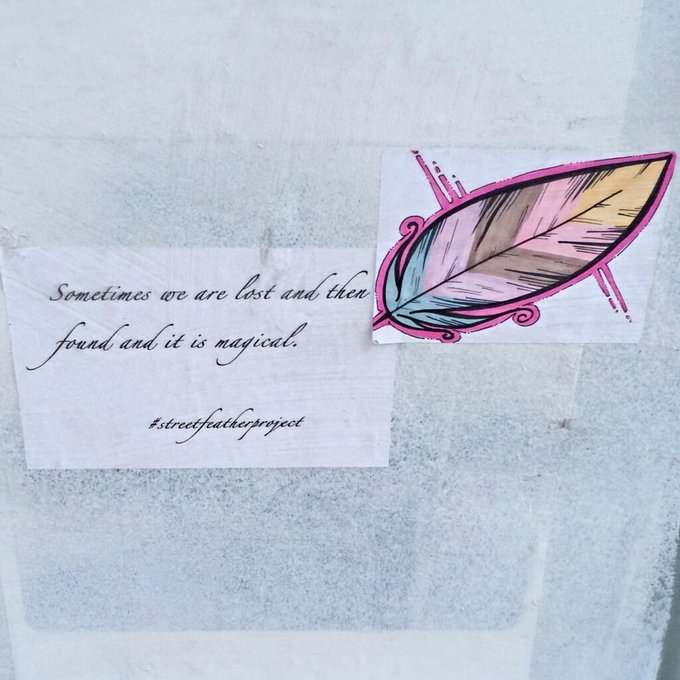 Sometimes we are lost and then
found and it is magical.
#streetfeatherproject